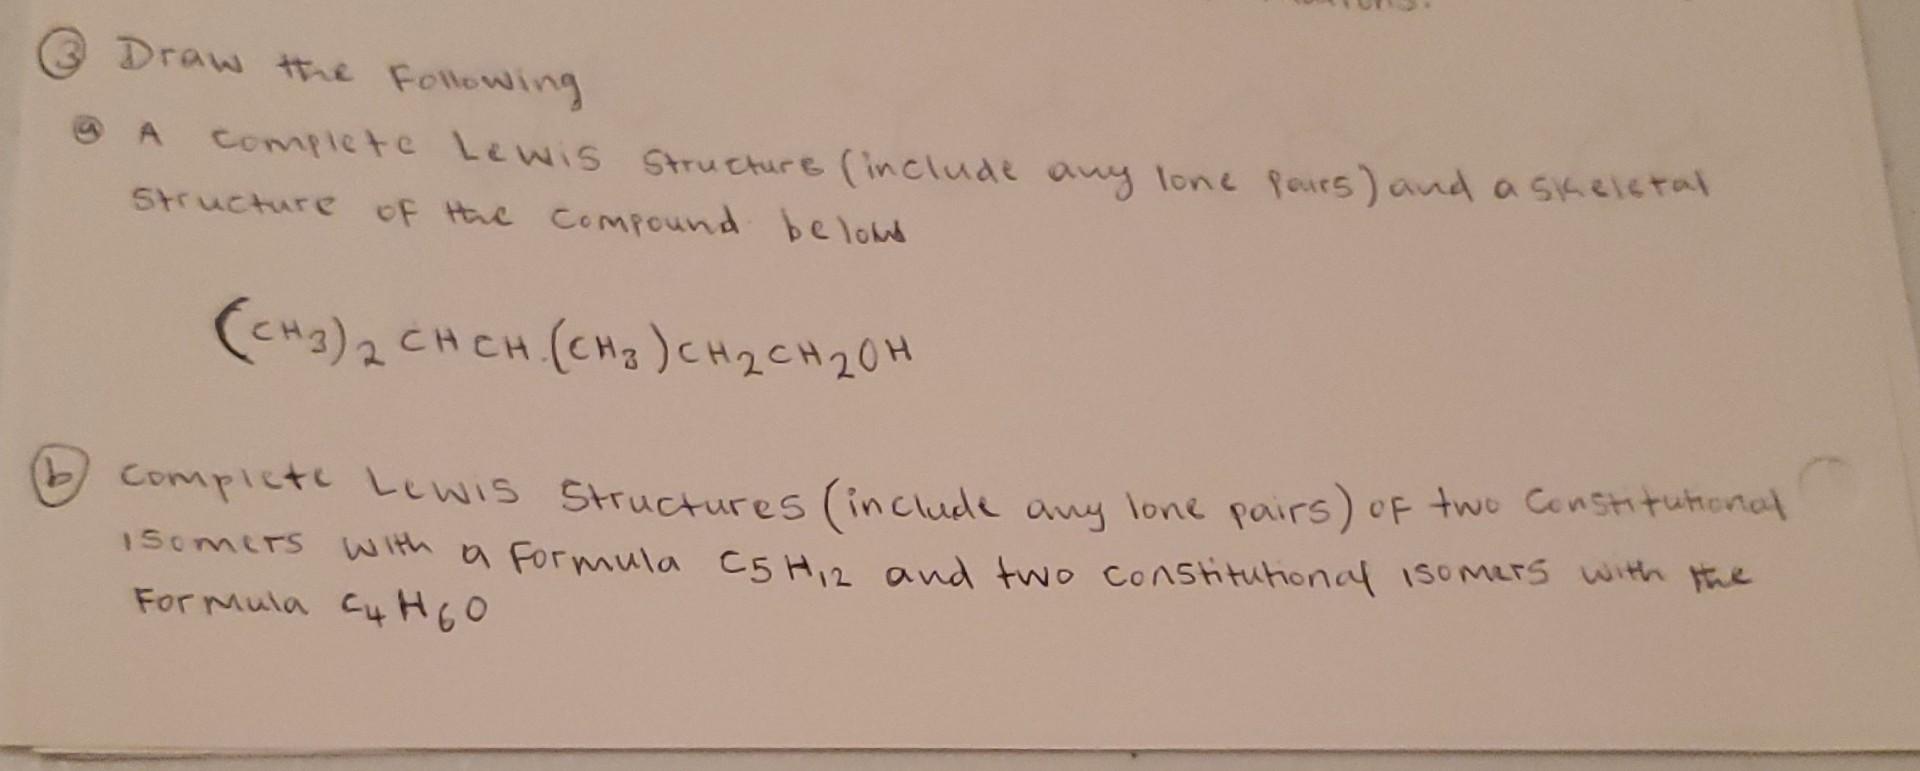 ③ Draw the Following
ⓐ A complete Lewis Structure (include any lone pairs) and a skeletal
Structure of the compound below
(CH3)2 CHCH(CH3)CH2CH2OH
ⓑ Complete Lewis Structures (include any lone pairs) of two Constitutional
isomers with a formula C5H12 and two constitutional isomers with the
Formula C4H6O